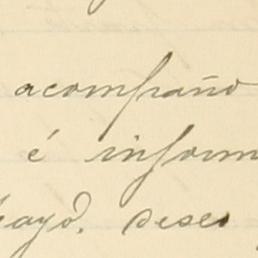 acompaño
é inform
hayd. deseo